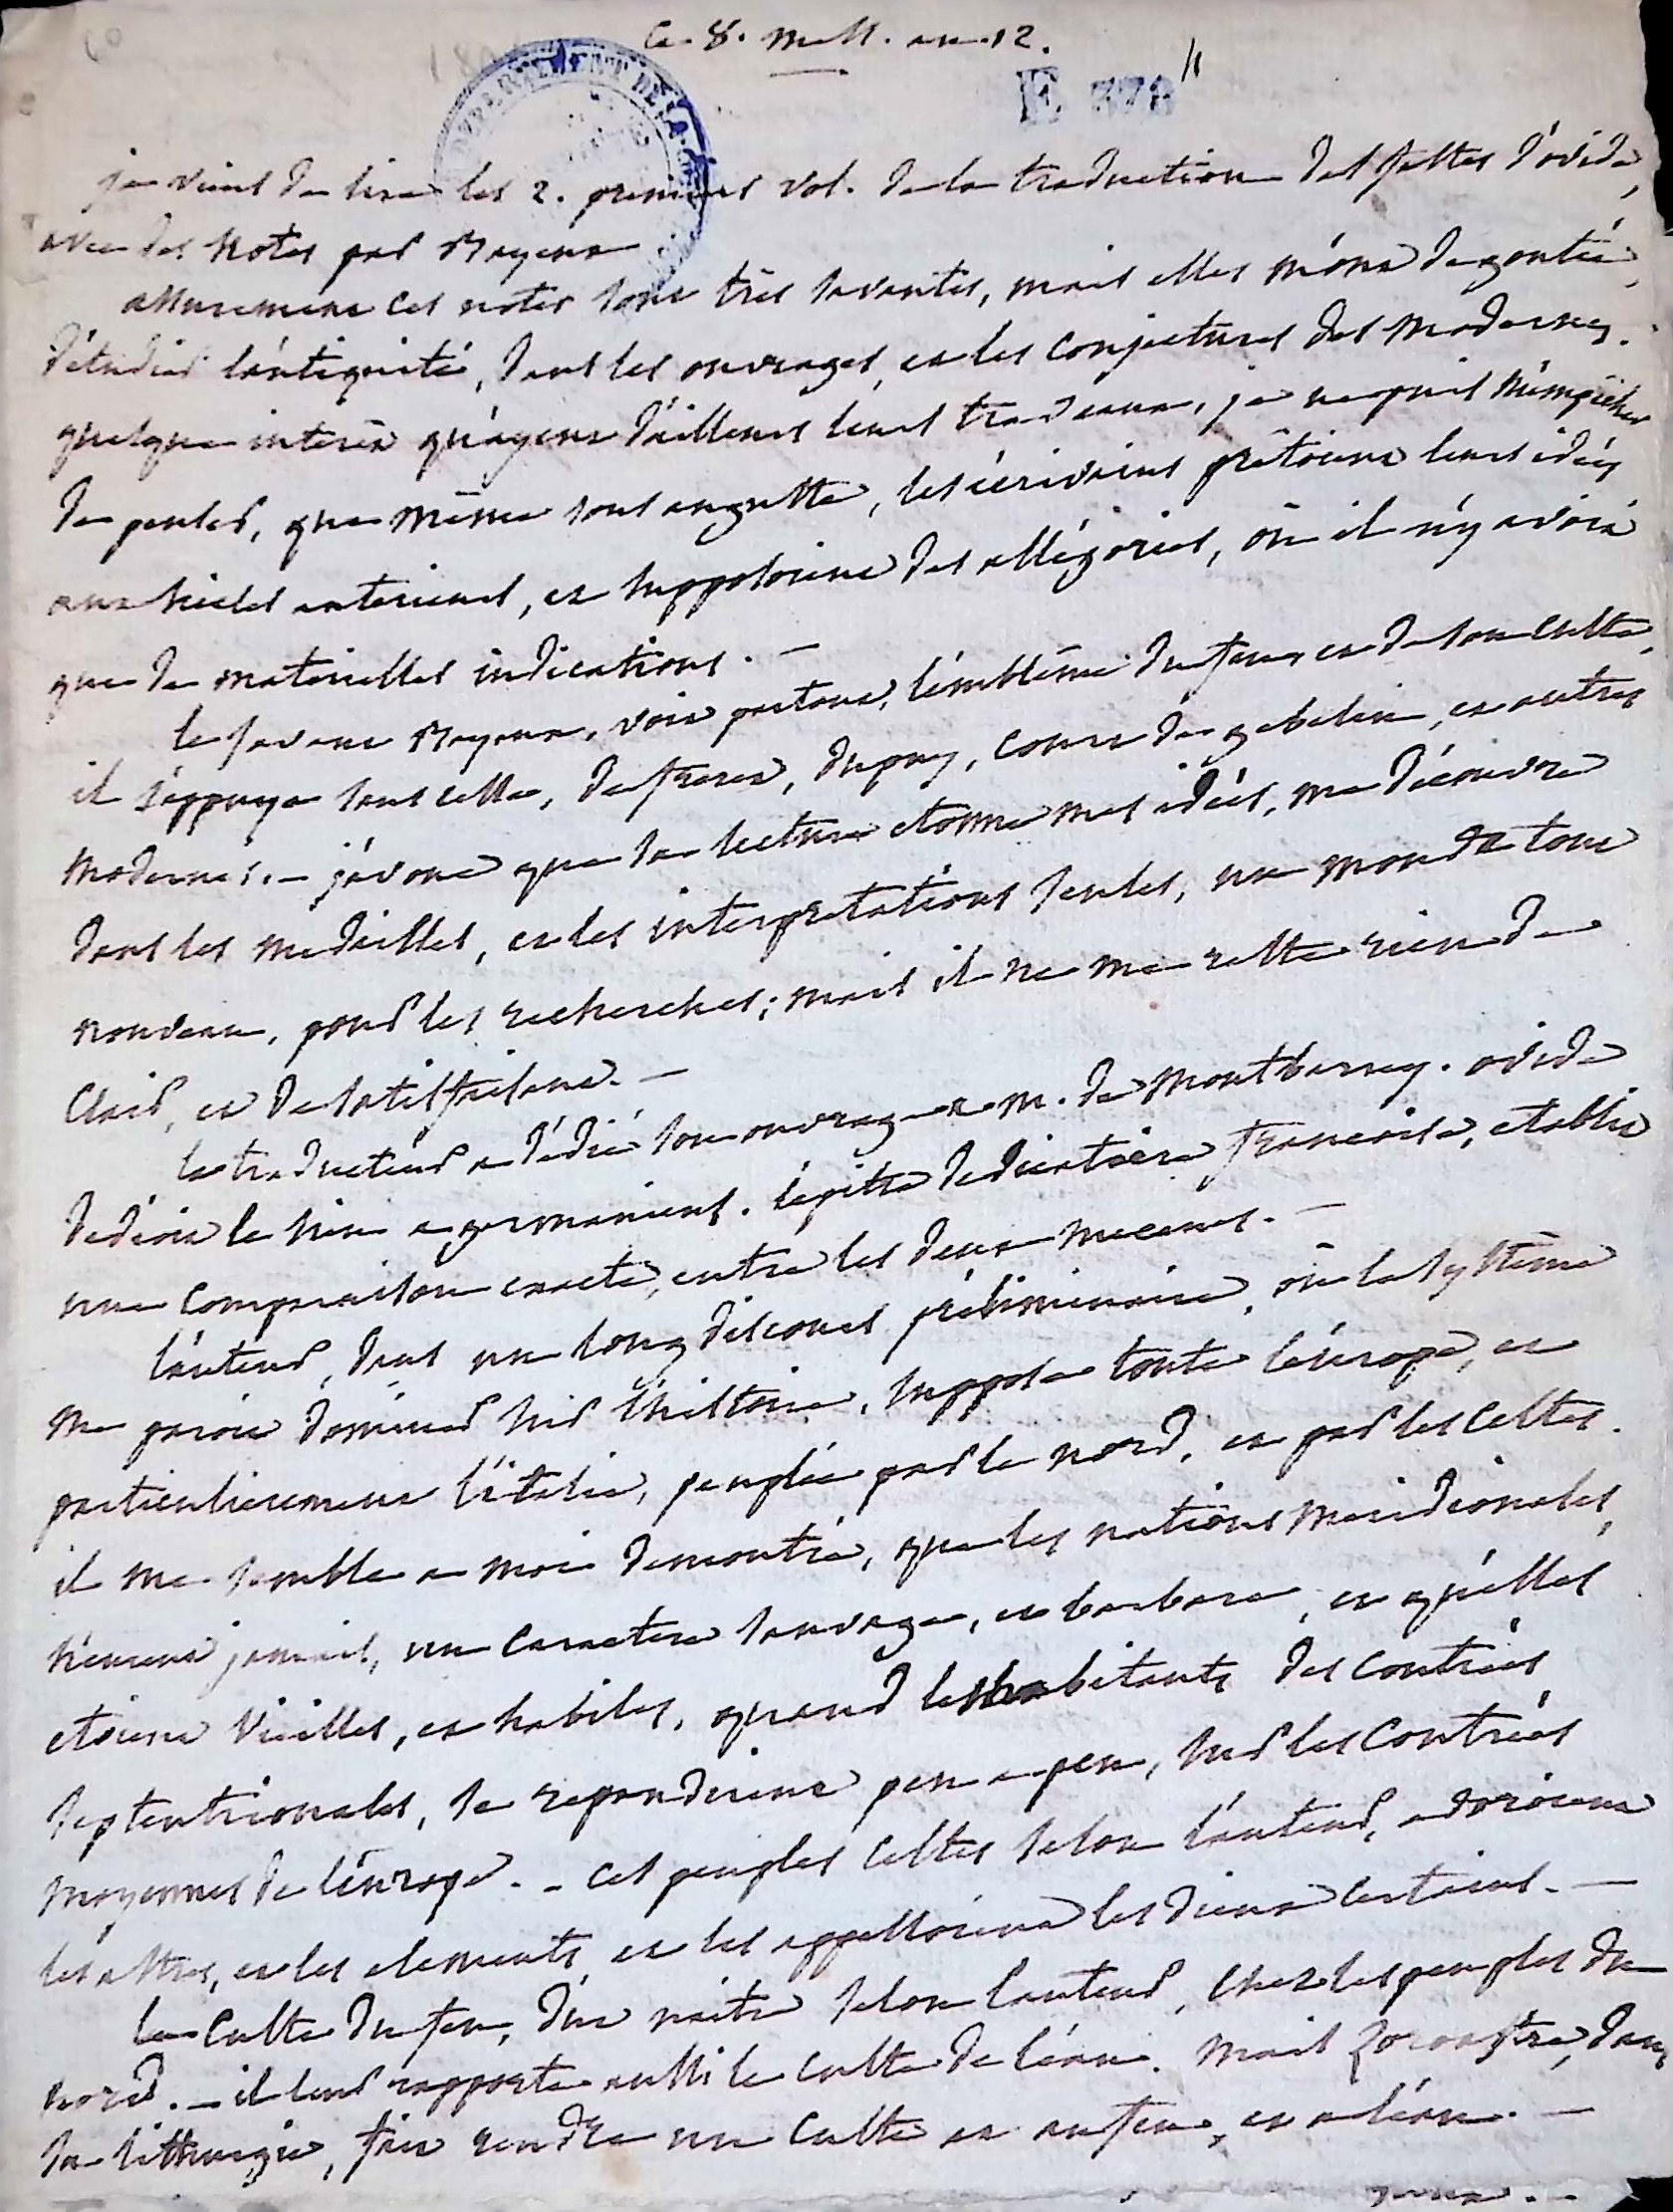 ce 8. mess. an. 12.
E 378
DÉPARTEMENT DE LA
je viens de lire les 2. premiers vol. de la traduction des fastes d'ovide,
avec des notes par Bayeux
assurement ces notes sont très savantes, mais elles m'ont degoutée,
d'étudier l'antiquité, dans les ouvrages, et les conjectures des modernes.
quelqu'interêt qu'ayent d'ailleurs leurs travaux, je ne puis m'empêcher
de penser, que même sous auguste, les écrivains prêtoient leurs idées
aux siecles anterieurs, et supposoient des allégories, où il n'y avoit
que de materielles indications. —
le savant Bayeux, voit partout, l'emblême du feu, et de son culte,
il s'appuye sans cesse, de freret, dupuy, court de gebelin, et autres
modernes. — j'avoue que sa lecture etonne mes idées, me découvre
dans les medailles, et les interpretations seules, un monde tout
nouveau, pour les recherches; mais il ne me reste rien de
clair, et de satisfaisant. —
le traducteur a dédié son ouvrage a m. de montbarrey. ovide
dedioit le sien a germanicus. l'epitre dedicatoire françoise, etablit
une comparaison exacte, entre les deux mecenes. —
l'auteur, dans un long discours préliminaire, où le systême
me paroit dominer sur l'histoire, suppose toute l'europe, et
particulierement l'italie, peuplée par le nord, et par les celtes.
il me semble a moi demontré, que les nations meridionales,
n'eurent jamais, un caractere sauvage, et barbare, et qu'elles
etoient vieilles, et habiles, quand les habitants des contrées
septentrionales, se repandirent peu a peu, sur les contrées
moyennes de l'europe. — ces peuples celtes selon l'auteur, adoroient
les astres, et les elements et les appelloient les dieux certains. —
le culte du feu, dut naitre selon l'auteur, chez les peuples du
nord. — il leur rapporte aussi le culte de l'eau. mais zoroastre, dans
sa lithurgie, fait rendre un culte et au feu, et a l'eau. —